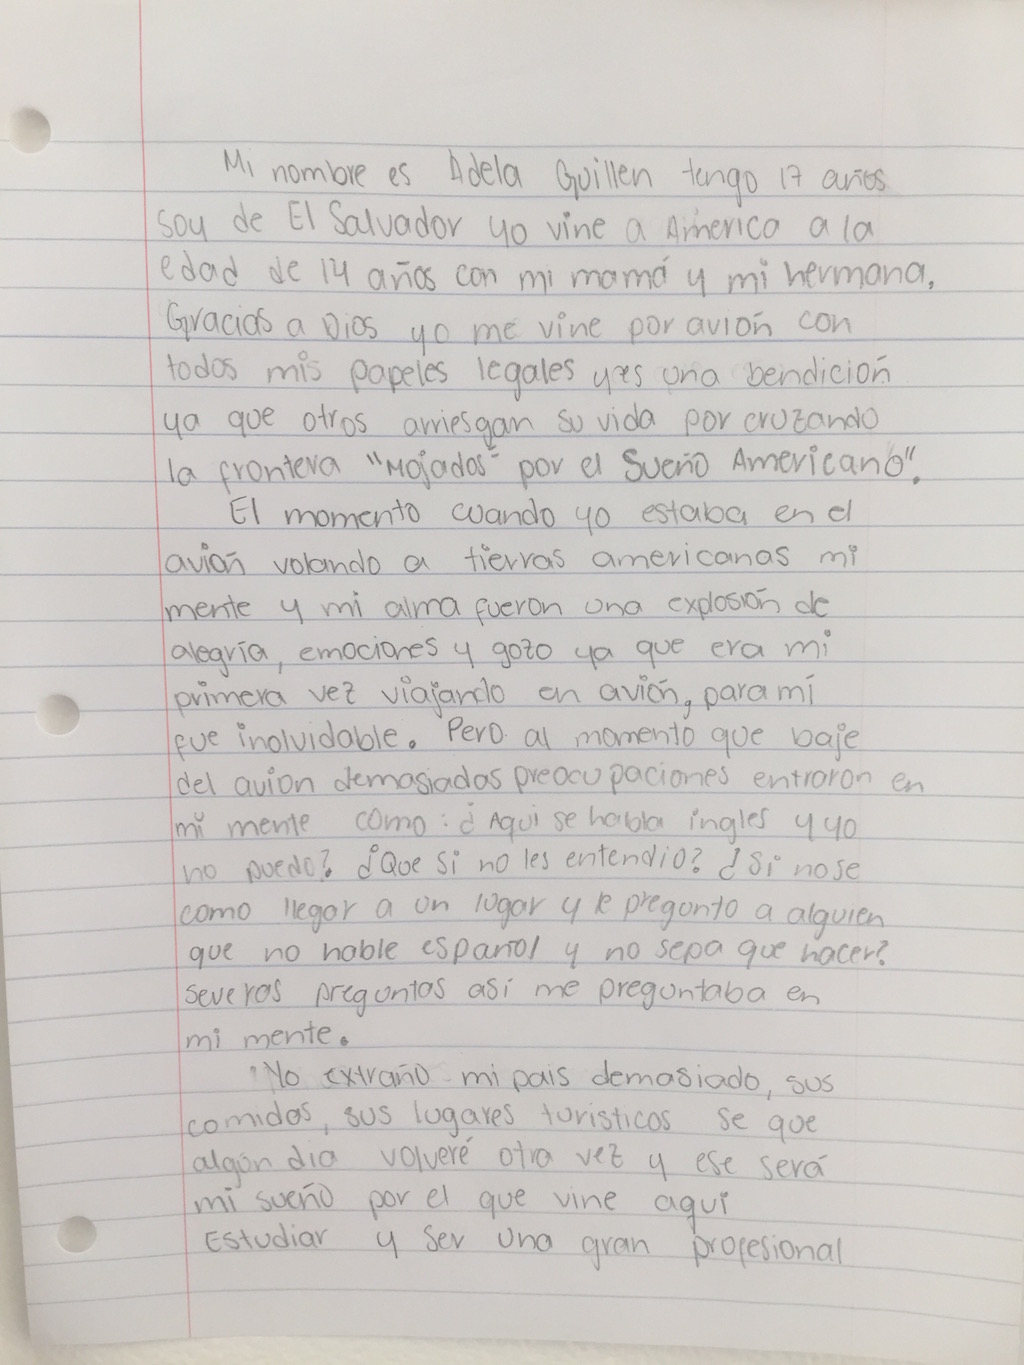 Mi nombre es Adela Guillen tengo 17 años
soy de El Salvador yo vine a America a la
edad de 14 años con mi mamá y mi hermana.
Gracias a Dios yo me vine por avión con
todos mis papeles legales y es una bendición
ya que otros arriesgan su vida por cruzando
la frontera "Mojados" por el Sueño Americano".
El momento cuando yo estaba en el
avión volando a tierras americanas mi
mente y mi alma fueron una explosión de
alegría, emociones y gozo ya que era mi
primera vez viajando en avión, para mí
fue inolvidable. Pero al momento que baje
del avion demasiadas preocupaciones entraron en
mi mente como: ¿Aqui se habla ingles y yo
no puedo? ¿Que si no les entendio? ¿Si no se
como llegar a un lugar y le pregunto a alguien
que no hable español y no sepa que hacer?
severas preguntas así me preguntaba en
mi mente.
Yo extraño mi pais demasiado, sus
comidas, sus lugares turísticos se que
algún día volveré otra vez y ese será
mi sueño por el que vine aquí
Estudiar y ser una gran profesional